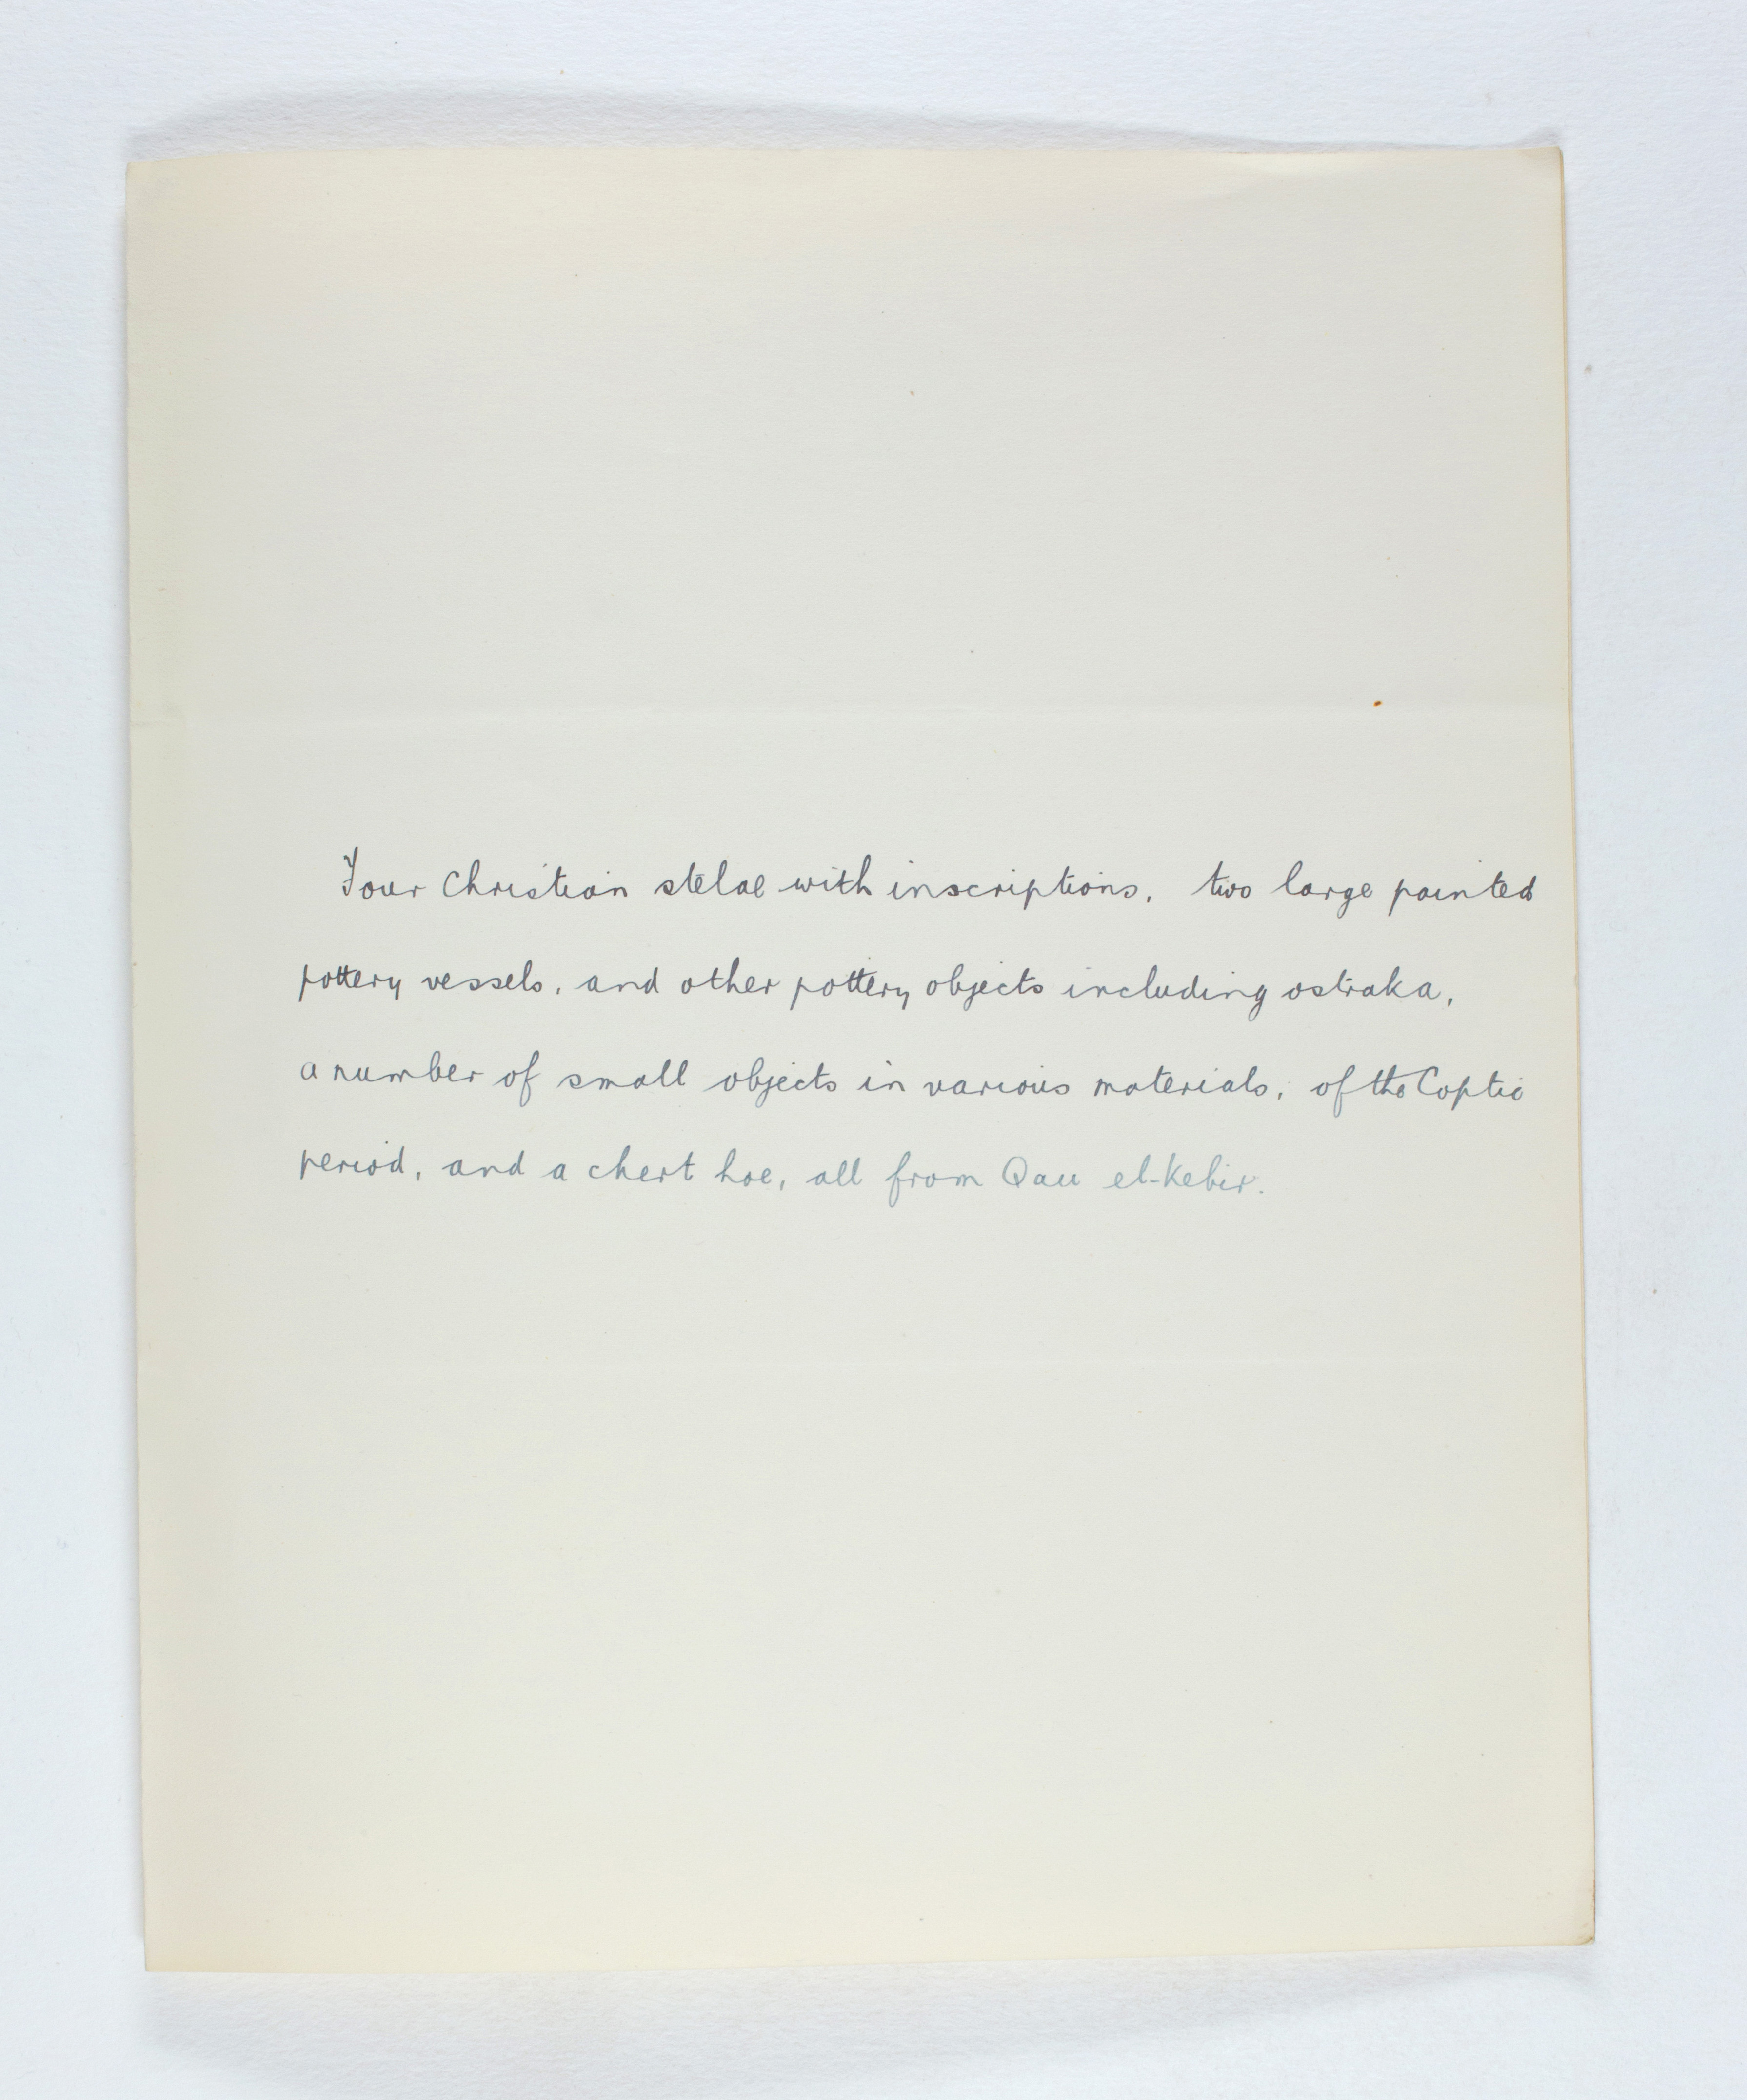 Four Christian stelae with inscriptions, two large painted
pottery vessels, and other pottery objects including ostraka,
a number of small objects in various materials, of the Coptic
period, and a chert hoe, all from Qau el-Kebir.